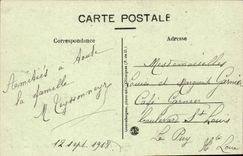 CARTE POSTALE
Correspondance
Adresse
Amitiés à toute
la famille
M Teyssonneyre
12 sept 1918
Mesdemoiselles
Louise et Margueritte Garnier
Café Garnier
boulevard St Louis
Le Puy
Hte Loire